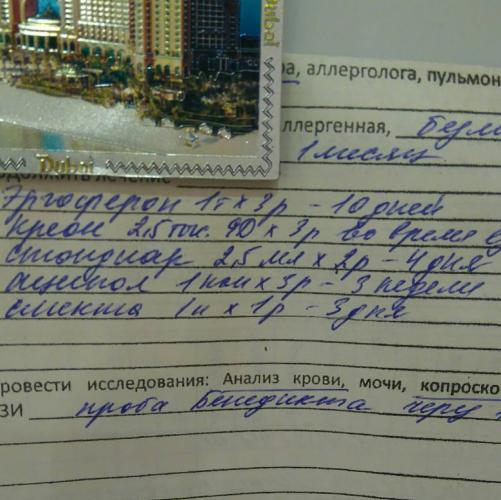 Dubai
ра, аллерголога, пульмон
ллергенная, безм
Dubai 1 месяц
Эргоферон 1т х 3р - 10 дней
Креон 2,5 тыс. х 3р во время е
2,5 мл х 2р - 4 дня
аципол 1 кап х 3р - 3 недели
смекта 1п х 1р - 3 дня
ровести исследования: Анализ крови, мочи, копроско
ЗИ проба Бенедикта